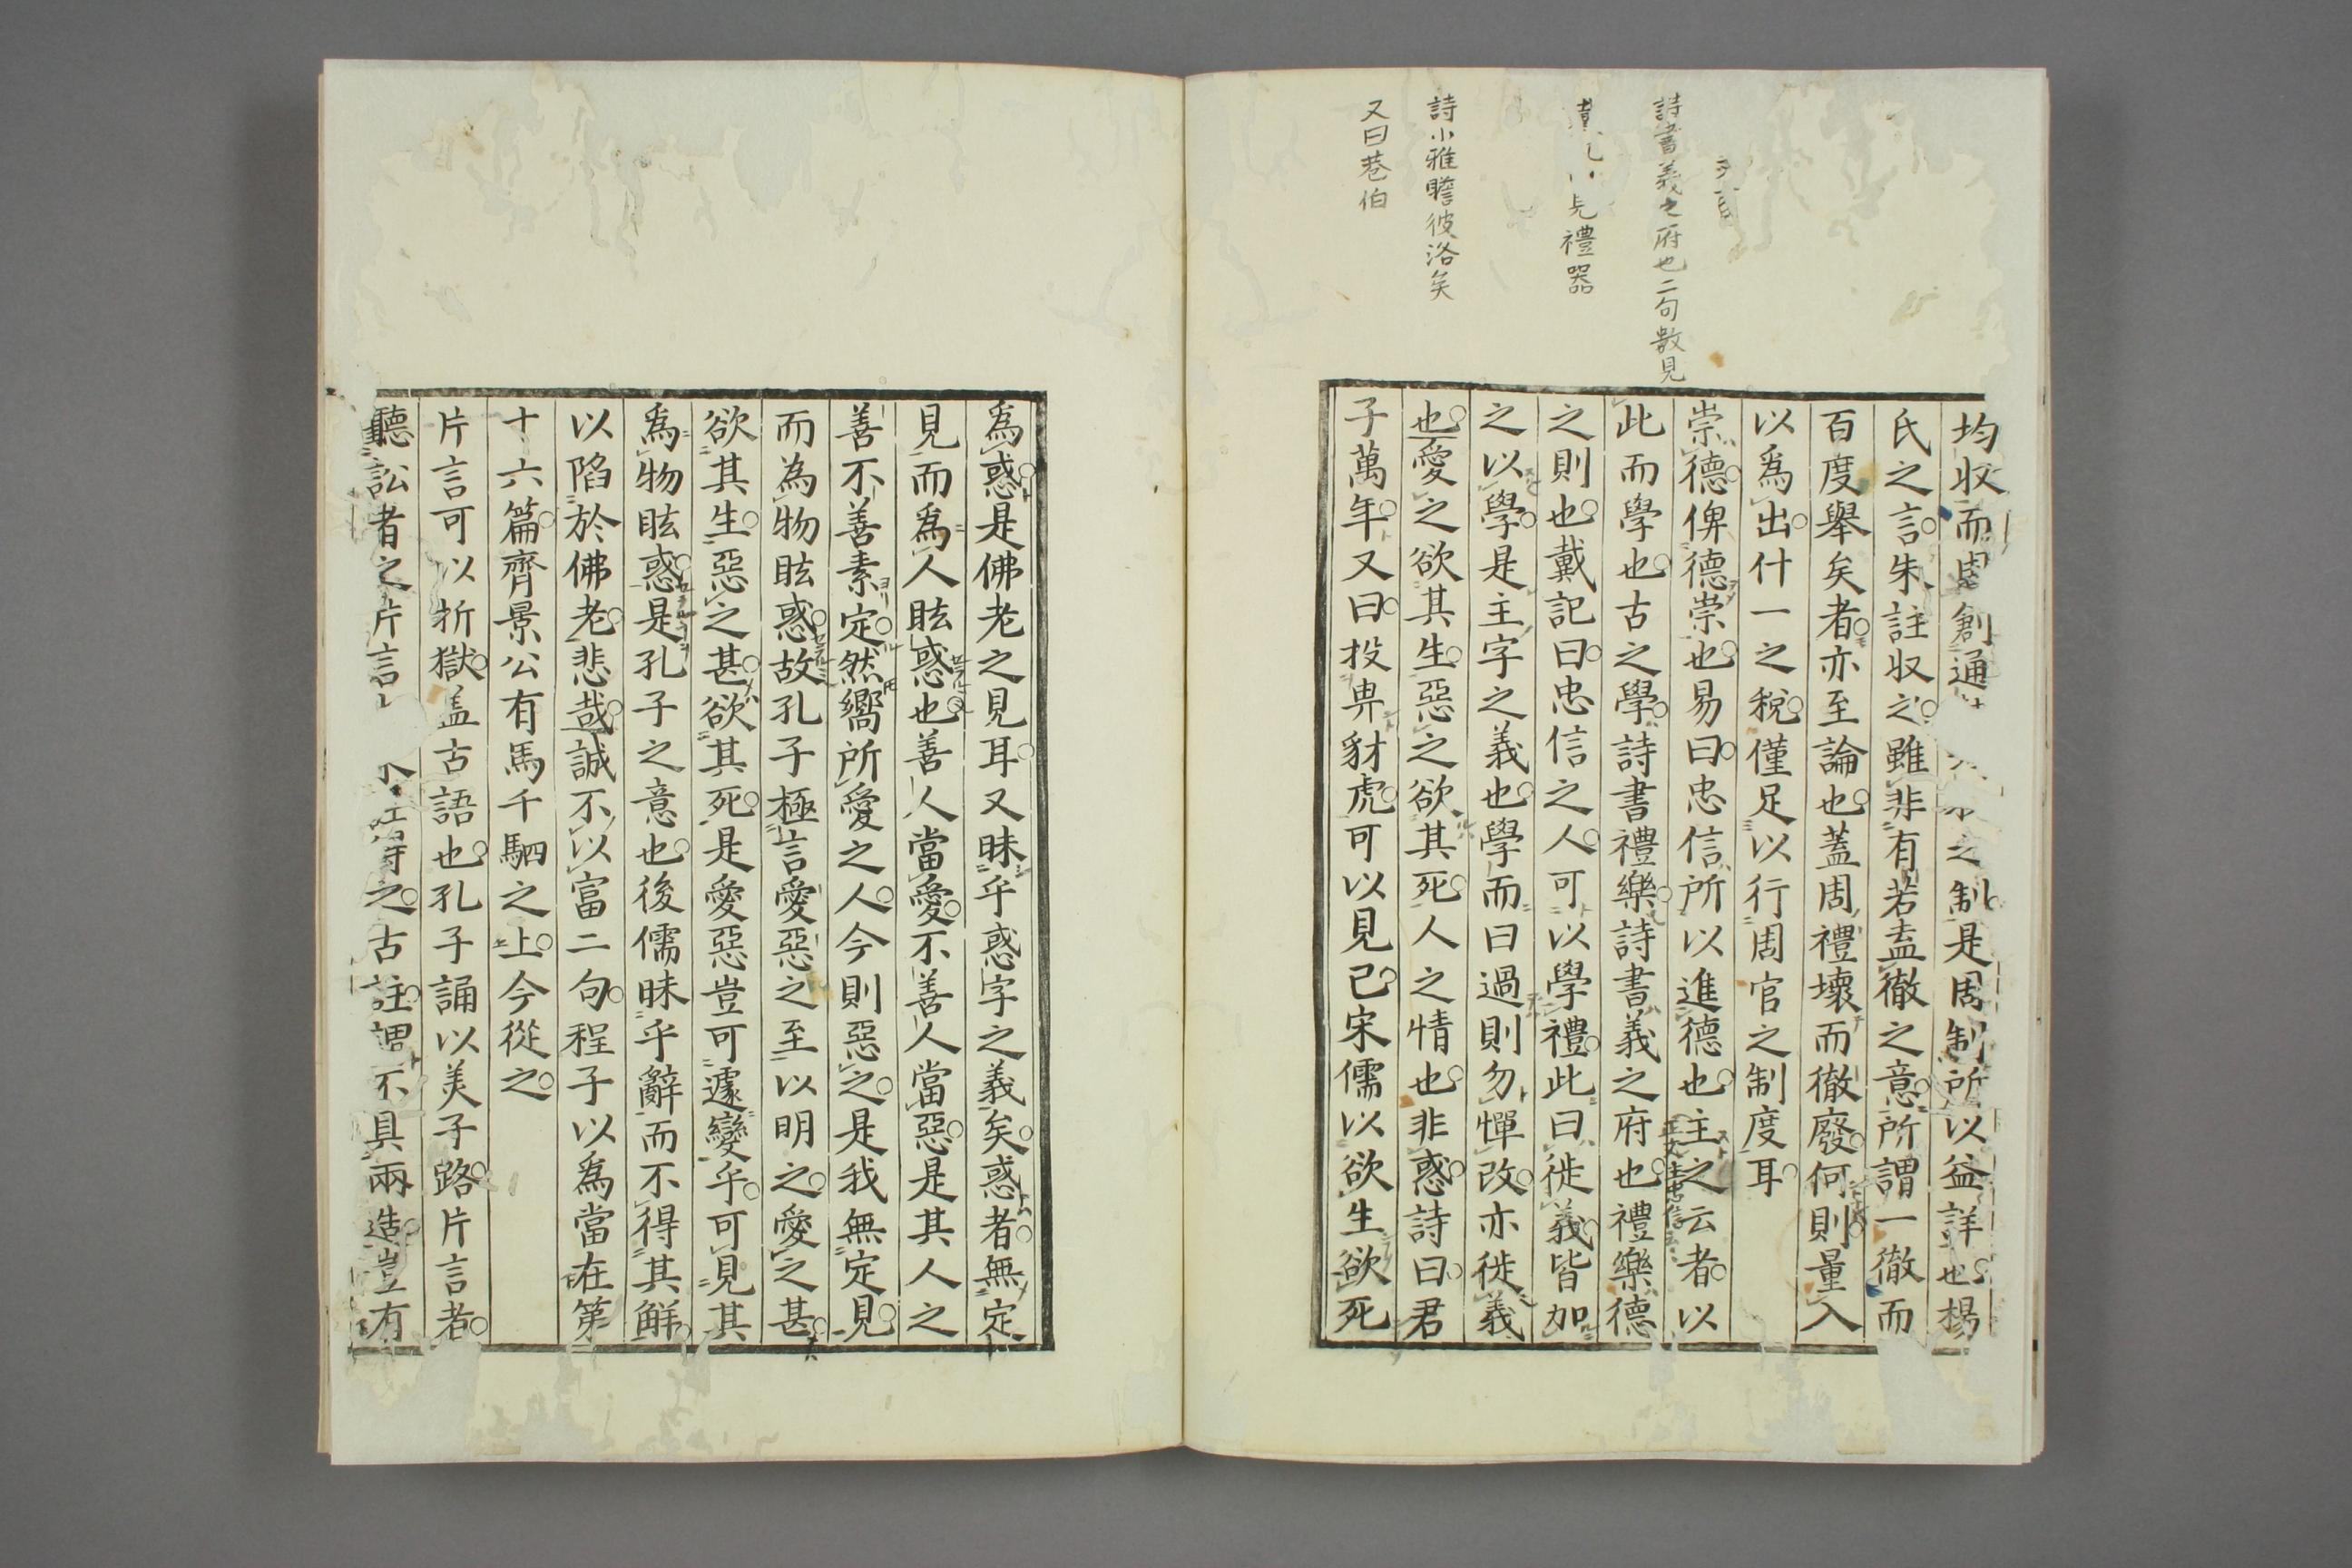 詩書義之府也二句數見
見禮器
詩小雅瞻彼洛矣
又曰巷伯
均收而周創通
之制是周制所以益詳也楊
氏之言朱註収之雖非有若盍徹之意所謂一徹而
百度舉矣者亦至論也蓋周禮壞而徹廢何則量入
以爲出什一之稅僅足以行周官之制度耳
崇德俾德崇也易曰忠信所以進德也主之云者以
此而學也古之學詩書禮樂詩書義之府也禮樂德
之則也戴記曰忠信之人可以學禮此曰徙義皆加
之以學是主字之義也學而曰過則勿憚改亦徙義
也愛之欲其生惡之欲其死人之情也非惑詩曰君
子萬年又曰投畀豺虎可以見已宋儒以欲生欲死
爲惑是佛老之見耳又昧乎惑字之義矣惑者無定
見而爲人眩惑也善人當愛不善人當惡是其人之
善不善素定然嚮所愛之人今則惡之是我無定見
而為物眩惑故孔子極言愛惡之至以明之愛之甚
欲其生惡之甚欲其死是愛惡豈可遽變乎可見其
爲物眩惑是孔子之意也後儒昧乎辭而不得其解
以陷於佛老悲哉誠不以富二句程子以爲當在第
十六篇齊景公有馬千駟之上今從之
片言可以折獄盖古語也孔子誦以美子路片言者
聽訟者之片言
之古註謂不具兩造豈有